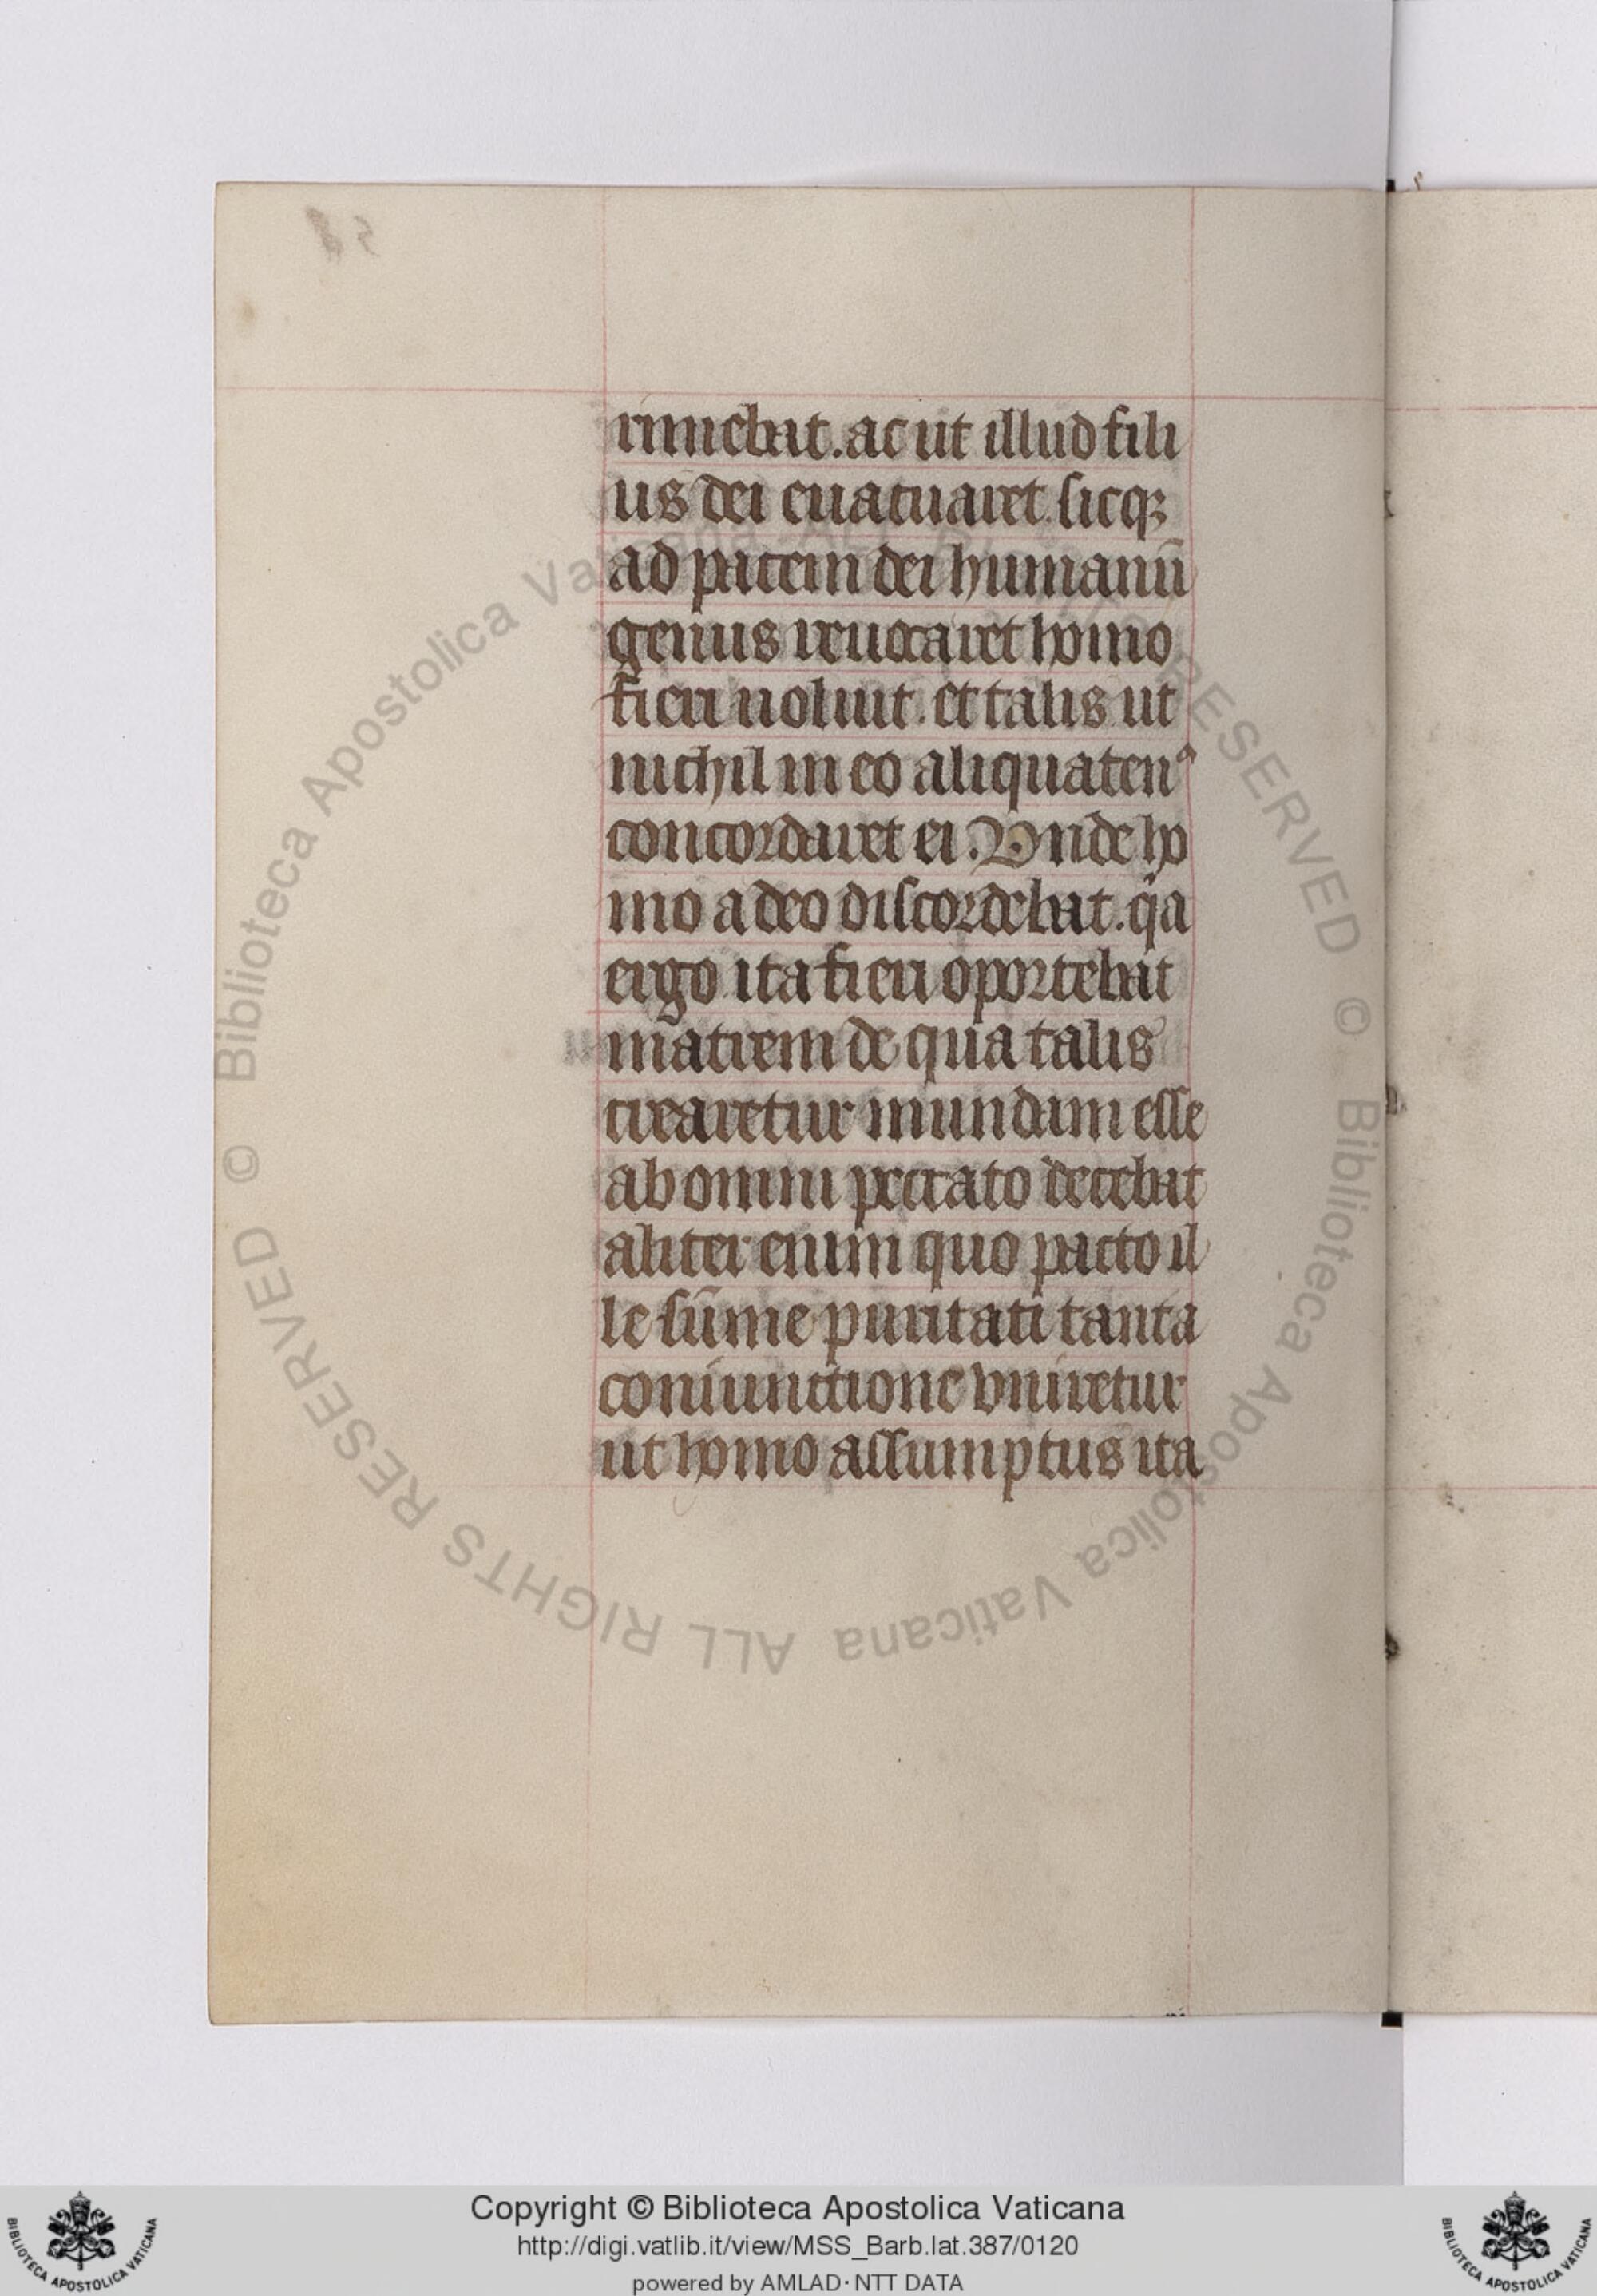 rimebat. ac ut illud fili
us dei euacuaret. sicqꝫ
ad pacem dei humanū
genus reuocaret homo
fieri uoluit. et talis ut
nichil in eo aliquatenꝰ
concordaret ei. Vnde ho
mo a deo discordebat. q̇a
ergo ita fieri oportebat
matrem de qua talis
crearetur mundam esse
ab omni peccato decebat
aliter enim quo pacto il
le sūme puritati tanta
coniunctione vniretur
ut homo assumptus ita
© Biblioteca Apostolica Vaticana ALL RIGHTS RESERVED
© Biblioteca Apostolica Vaticana ALL RIGHTS RESERVED
Copyright © Biblioteca Apostolica Vaticana
http://digi.vatlib.it/view/MSS_Barb.lat.387/0120
powered by AMLAD·NTT DATA
BIBLIOTECA APOSTOLICA VATICANA
BIBLIOTECA APOSTOLICA VATICANA